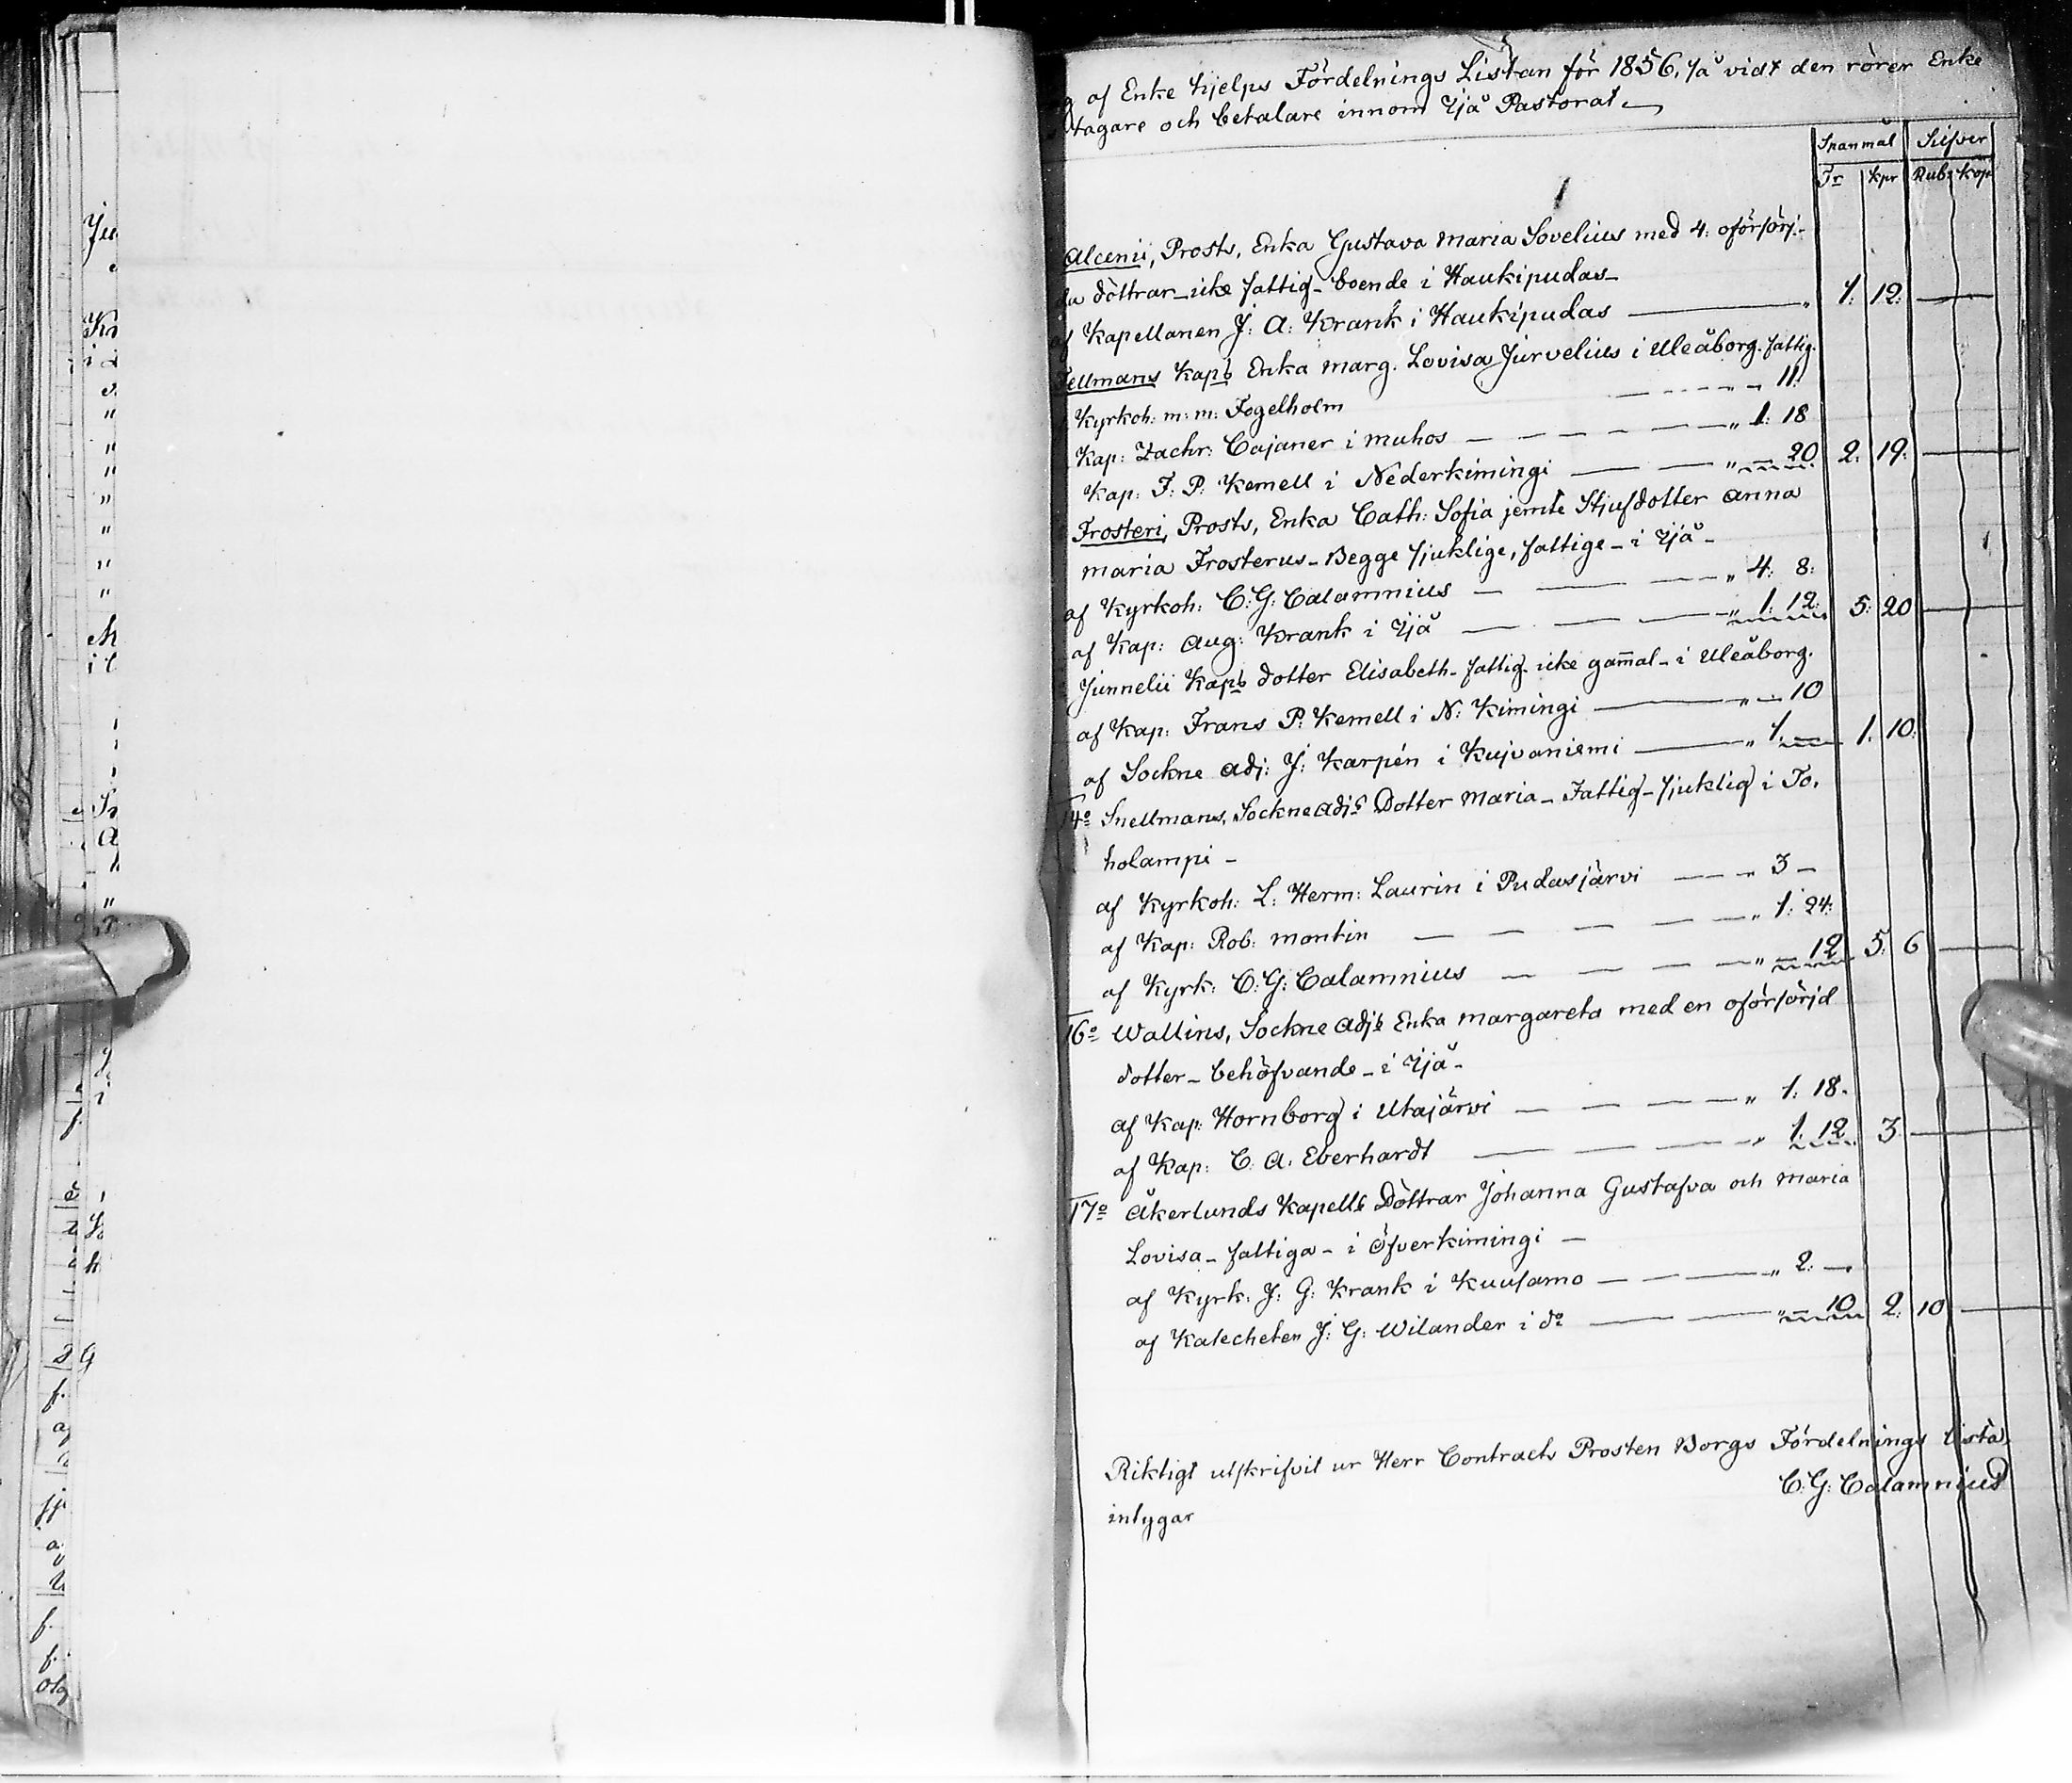 af Enke hjelps Fördelnings Listan för 1856, så vidt den rörer Enke
tagare och betalare innom Ijå Pastorat
Spanmål Silfver
Tr kpr Rub: kop
Alcenii, Prosts, Enka Gustava Maria Sovelius med 4: oförsörj:
da döttrar - icke fattig - boende i Haukipudas -
af Kapellanen J: A: Krank i Haukipudas — " 1: 12: —
Tellmans Kaps Enka Marg. Lovisa Jurvelius i Uleåborg. fattig.
Kyrkoh: m: m: Fogelholm - - - " - 11:
Kap: Zachr: Cajaner i Muhos — — — — — " 1: 18
Kap: F: P: Kemell i Nederkimingi — — " — 20 2: 19: —
Frosteri, Prosts, Enka Cath: Sofia jemte Stjufdotter Anna
Maria Frosterus - Begge sjuklige, fattige - i Ijå -
af Kyrkoh: C: G: Calamnius — — — " 4: 8:
af Kap: Aug: Krank i Ijå — — — " 1: 12: 5: 20 —
Junnelii Kaps dotter Elisabeth - fattig - icke gam̄al - i Uleåborg.
af Kap: Frans P: Kemell i N: Kimingi — " — 10
af Sockne adj: J: Karpén i Kujvaniemi — " 1. — 1: 10:
14o Snellmans, Sockne adjs Dotter Maria - Fattig - sjuklig i To,
holampi -
af Kyrkoh: L: Herm: Laurin i Pudasjärvi — — " 3 —
af Kap: Rob: Montin — — — — — " 1: 24:
af Kyrk: C: G: Calamnius — — — — " — 12 5: 6 —
16o Wallins, Sockne adjs Enka Margareta med en oförsörjd
dotter - behöfvande - i Ijå -
af Kap: Hornborg i Utajärvi — — — — " 1: 18.
af Kap: C. A. Everhardt — — — " 1: 12 3 —
17o Åkerlunds Kapells Döttrar Johanna Gustafva och Maria
Lovisa - fattiga - i Öfverkimingi —
af Kyrk: J: G: Krank i Kuusamo — — — " 2: —
af Katecheten J: G: Wilander i do — — " — 10 2: 10 —
Riktigt utskrifvit ur Herr Contracts Prosten Borgs Fördelnings lista,
intygar
C: G: Calamnius